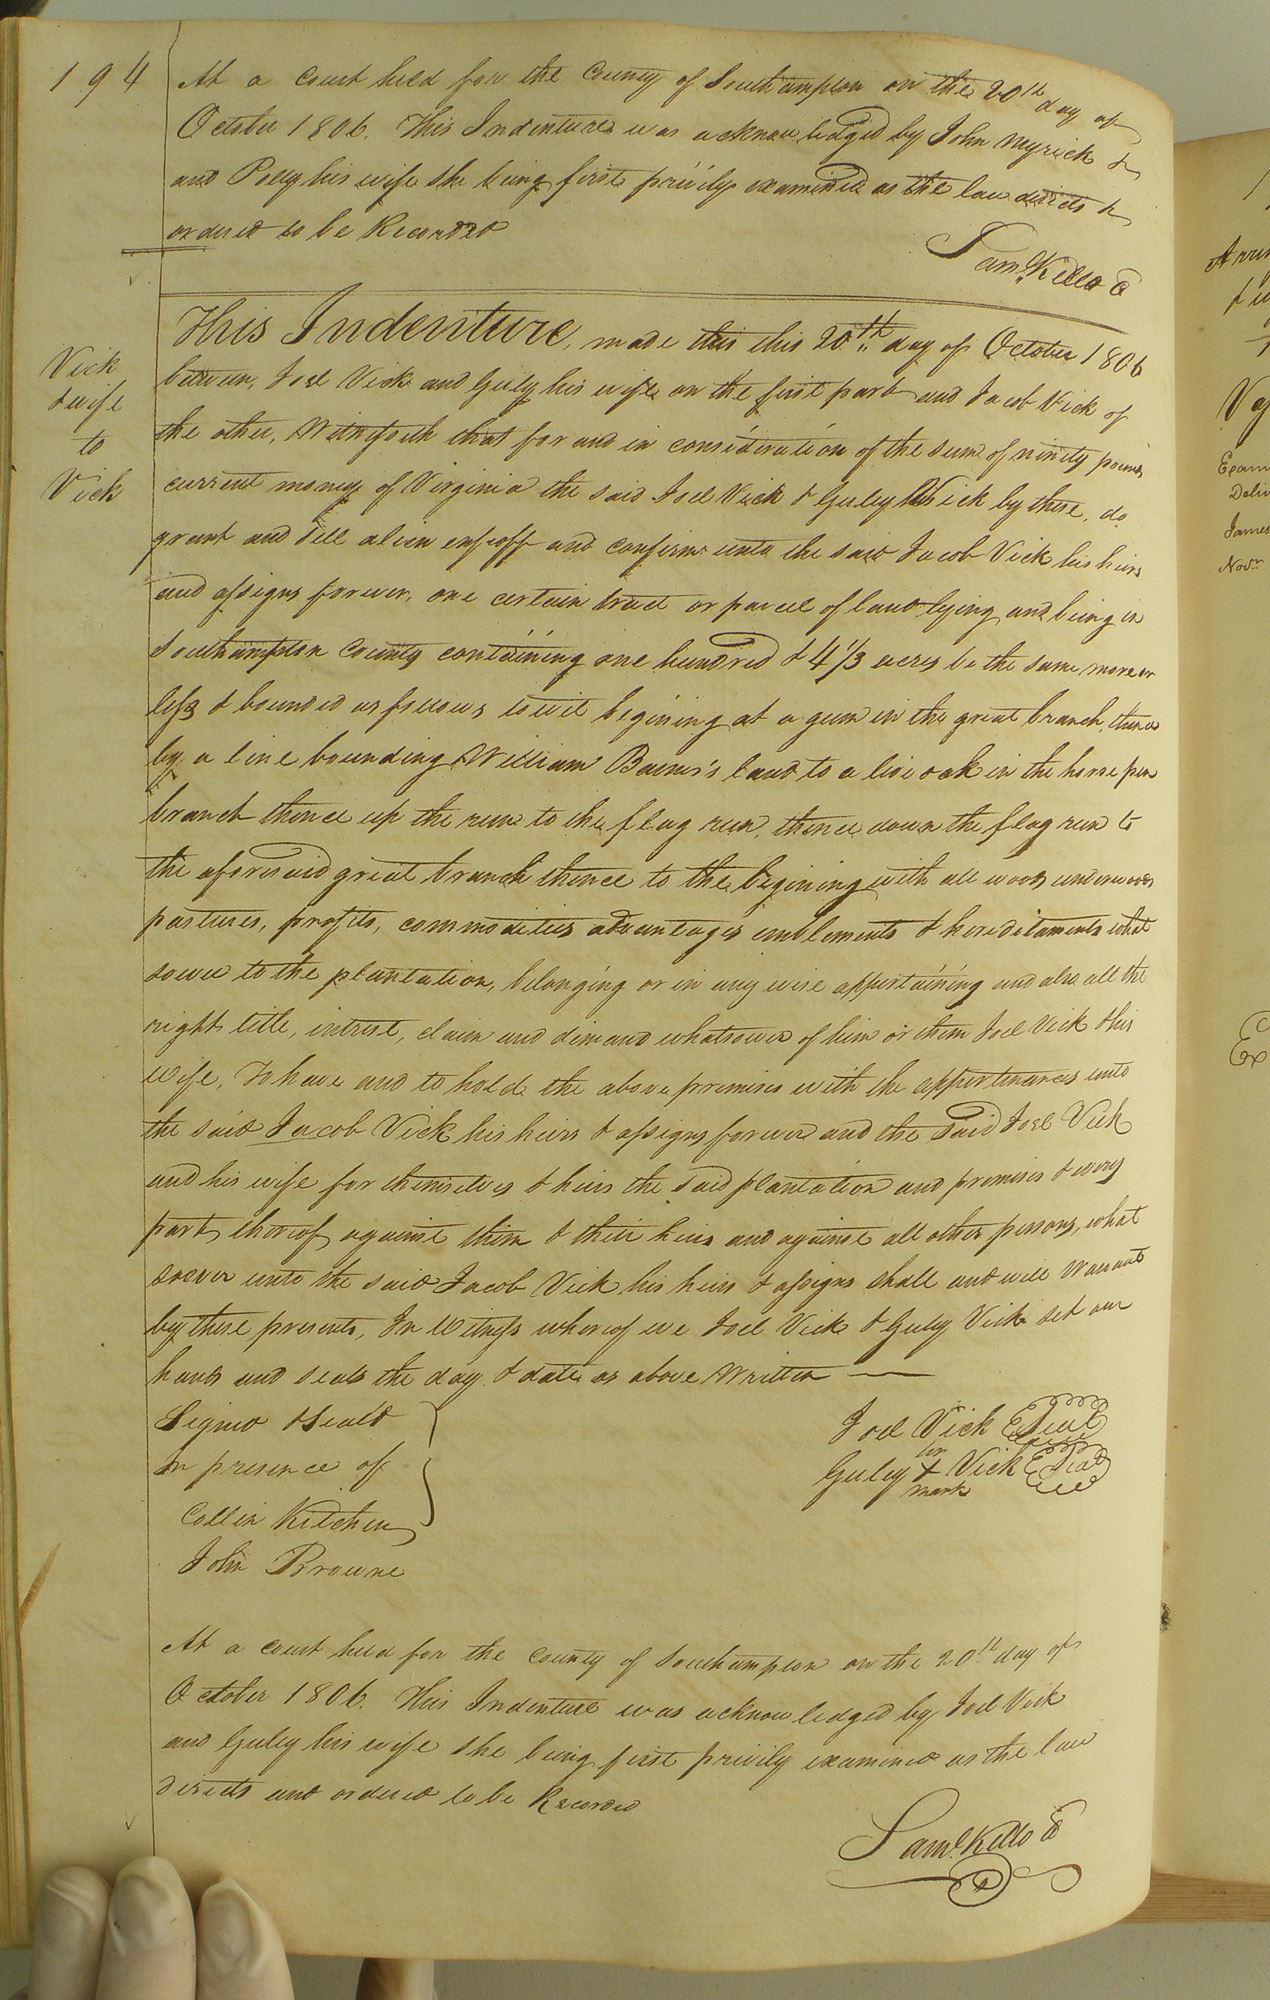 194
At a court held for the County of Southampton on the 20th day of
October 1806. This Indenture was acknowledged by John Myrick &
and Polly his wife she being first privily examined as the law directs &
ordered to be Recorded
Saml. Kello C
Vick
& wife
to
Vick
This Indenture, made this this 20th day of October 1806
between, Joel Vick and Guley his wife on the first part and Jacob Vick of
the other, Witnesseth that for and in consideration of the sum of ninety pounds
current money of Virginia the said Joel Vick & Guley Vick by these, do
grant and sell alien enfeoff and confirm unto the said Jacob Vick his heirs
and assigns forever, one certain tract or parcel of land lying and being in
Southampton County containing one hundred & 4 1/3 acres be the same more or
less & bounded as follows towit begining at a gum in the great branch, thence
by a line bounding William Barns's land to a live oak in the horse pen
branch thence up the run to the flag run, thence down the flag run to
the aforesaid great branch thence to the begining with all woods underwoods
pastures, profits, commodities advantages emblements & hereditaments what
soever to the plantation, belonging or in any wise appertaining and also all the
right, title, intrest, claim and demand whatsoever of him or them Joel Vick & his
wife, To have and to hold the above premises with the appurtenances unto
the said Jacob Vick his heirs & assigns forever and the Said Joel Vick
and his wife for themselves & heirs the said plantation and premises & every
part thereof against them & their heirs and against all other persons, what
soever unto the said Jacob Vick his heirs & assigns shall and will Warrant
by these presents, In Witness whereof we Joel Vick & Guley Vick set our
hands and seals the day & date as above Written
Signed & Seald
in presence of
Collin Kitchen
John Browne
Joel Vick Seal
her
Guley + Vick Seal
mark
At a court held for the County of Southampton on the 20th day of
October 1806. This Indenture was acknowledged by Joel Vick
and Guley his wife she being first privily examined as the law
directs and ordered to be Recorded
Saml. Kello C
Exam
Deliv
James
Novr
Ex